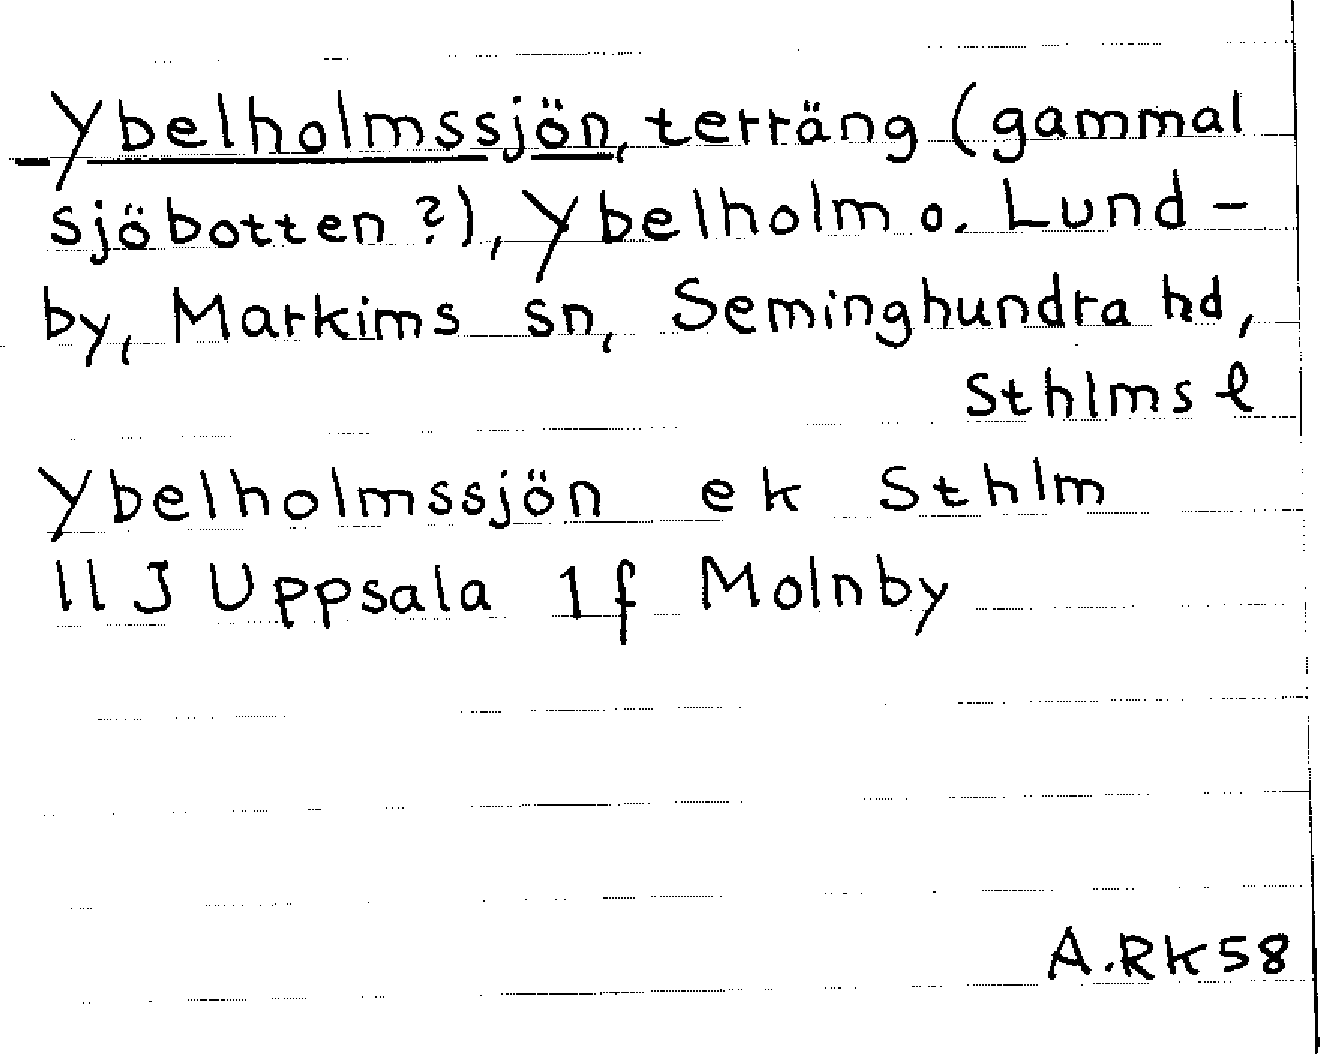 Ybelholmssjön, terräng (gammal
sjöbotten ?), Ybelholm o. Lund-
by, Markims sn, Seminghundra hd,
Sthlms l
Ybelholmssjön ek Sthlm
11 J Uppsala 1f Molnby
A.RK58